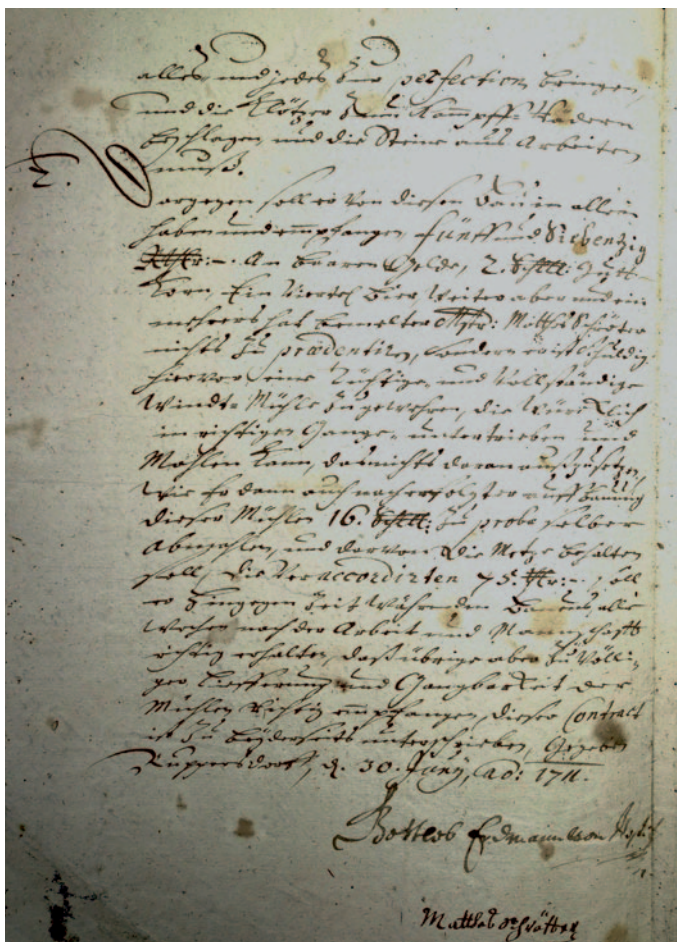 alles und jedes zur perfection bringen,
und die Klötzer zum Kampff-Rädern
beschlagen, und die Steine auß Arbeiten
muß.
2.
Dargegen soll er von diesen Bau in allem
haben und empfangen, fünff und Siebentzig
Rthlr:-. An baaren Gelde, 2. Schtl:
Korn, Ein Viertel Bier, Weiter aber und ein
mehrers hat bemelter Mstr: Mattheß Schröter
nichts zu prædentiren, sondern er ist schuldig,
hiervor eine Tüchtige, und Vollständige
Windt-Mühle zu gewehren, die Würcklich
in richtigen Gange, umtrieben und
Mahlen kann, das nichts daran außzusetzen,
Wie Er dann auch nach erfolgter auffbauung
dieser Mühlen 16. Schtl: zu probe selber
abmahlen, und darvon die Metze behalten
soll, die Veraccordirten 75. thlr:-. soll
er hingegen Zeit währenden Bauens, alle
Wochen nach der Arbeit und Mannschafft
richtig erhalten, daß übrige aber zu völli-
ger Liefferung und Gangbarkeit der
Mühlen Richtig empfangen, dieser Contract
ist zu beyderseits unterschrieben, Gegeben
Ruppersdorff, d. 30. Juny, ad: 1711.
Gottlob Erdmann von
Mattheß Schrötter